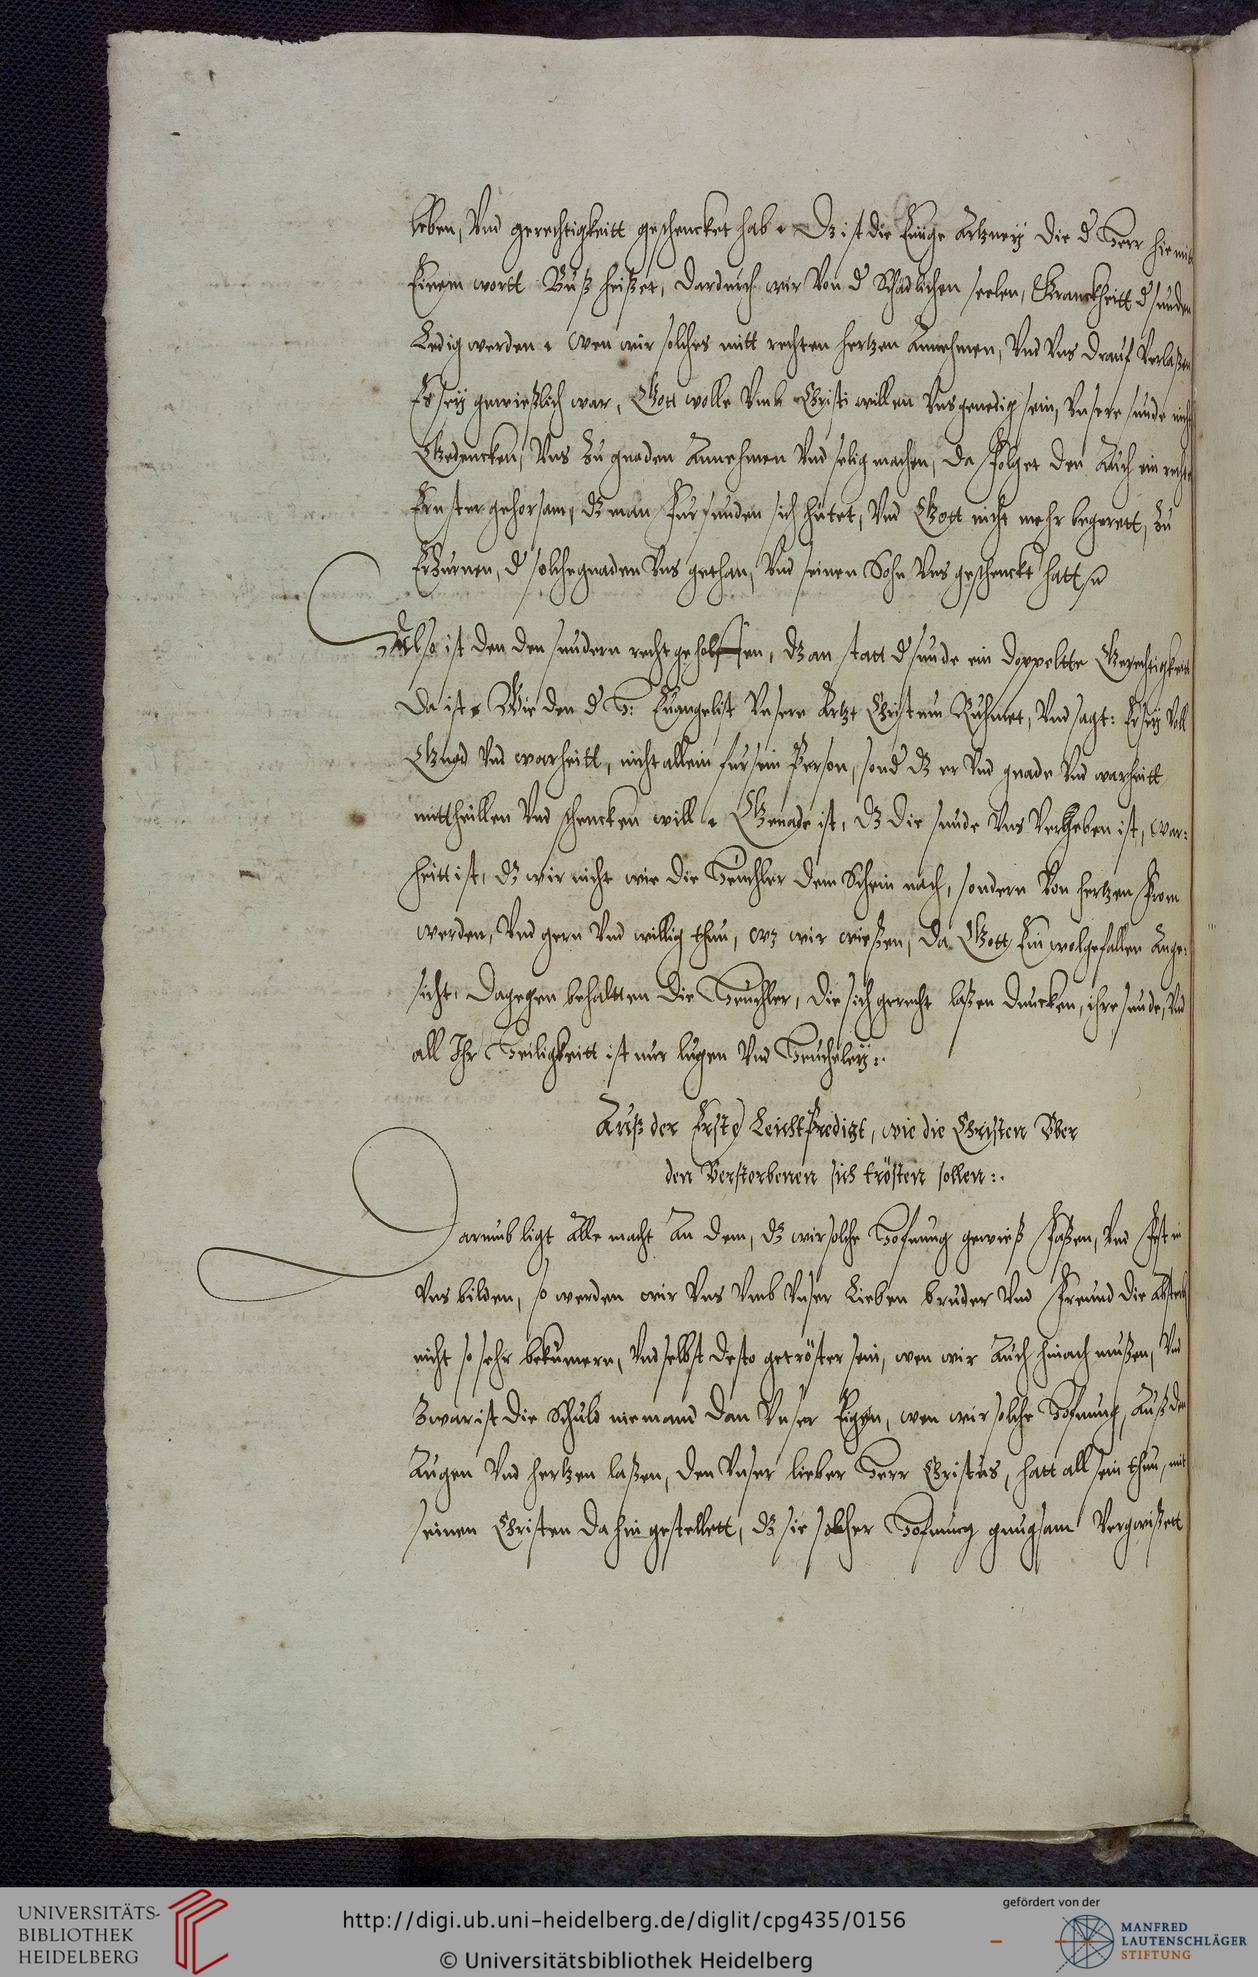 leben, Vnd gerechtigkeitt geschencket hab. Dz ist die Einige Artzney die d Herr hie mit
Einem wortt Buß heißet, dardurch wir Von d Schädlichen seelen, Kranckheitt d sunden
Ledig werden. Wen wir solches mitt rechten hertzen Annehmen, Vnd Vns drauf Verlaßen
Es sey gewießlich war, Gott wolle Vmb Christi willen Vns genedig sein, Vnsere sunde nicht
Gedencken, Vns Zu gnaden Annehmen Vnd selig machen, da folget den Auch ein rechter
Ernster gehorsam, dz man fur sunden sich hütet, Vnd Gott nicht mehr begerett, Zu
Erzurnen, d solche gnaden Vns gethan, Vnd seinen Sohn Vns geschenckt hatt
Also ist den den sundern recht geholffen, dz an statt d sunde ein doppeltte Gerechtigkeit
da ist. Wie den d H: Euangelist Vnsern Artzt Christum Ruhmet, Vnd sagt: Er sey Voll
Gnad Vnd warheitt, nicht allein fur sein Person, sond dz er Vns gnade Vnd warheitt
mittheillen Vnd schencken will. Genade ist, dz die sunde Vns Vergeben ist, war:
heitt ist, dz wir nicht wie die Heuchler dem Schein nach, sondern Von hertzen From
werden, Vnd gern Vnd willig thun, wz wir wießen, da Gott Ein wolgefallen Ange:
sicht. Dagegen behaltten die Heuchler, die sich gerecht laßen duncken, ihre sunde, Vnd
all Ihr Heiligkeitt ist nur lugen Vnd Heucheley:.
Auß der Erste Leichtpredigt, wie die Christen Vber
den Verstorbenen sich trösten sollen:.
Darumb ligt Alle macht An dem, dz wir solche Hofnung gewieß faßen, Vnd fest in
Vns bilden, so werden wir Vns Vmb Vnser Lieben bruder Vnd Freund die Absterb
nicht so sehr bekumern, Vnd selbst desto getröster sein, wen wir Auch hinach mußen, Vnd
Zwar ist die Schuld niemand dan Vnser Eigen, wen wir solche Hofnung, Auß den
Augen Vnd hertzen laßen, den Vnser lieber Herr Christus, hatt all sein thun, mit
seinen Christen dahin gestellett, dz sie solcher Hofnung gnugsam Vergwißett
UNIVERSITÄTS-
BIBLIOTHEK
HEIDELBERG
http://digi.ub.uni-heidelberg.de/diglit/cpg435/0156
© Universitätsbibliothek Heidelberg
gefördert von der
MANFRED
LAUTENSCHLÄGER
STIFTUNG